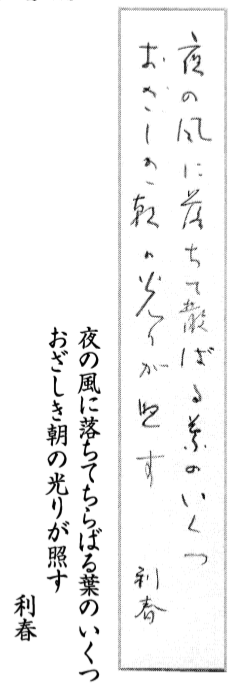 夜の風に落ちて散ばる葉のいくつ
おざしき朝の光りが照す
利春
夜の風に落ちてちらばる葉のいくつ
おざしき朝の光りが照す
利春